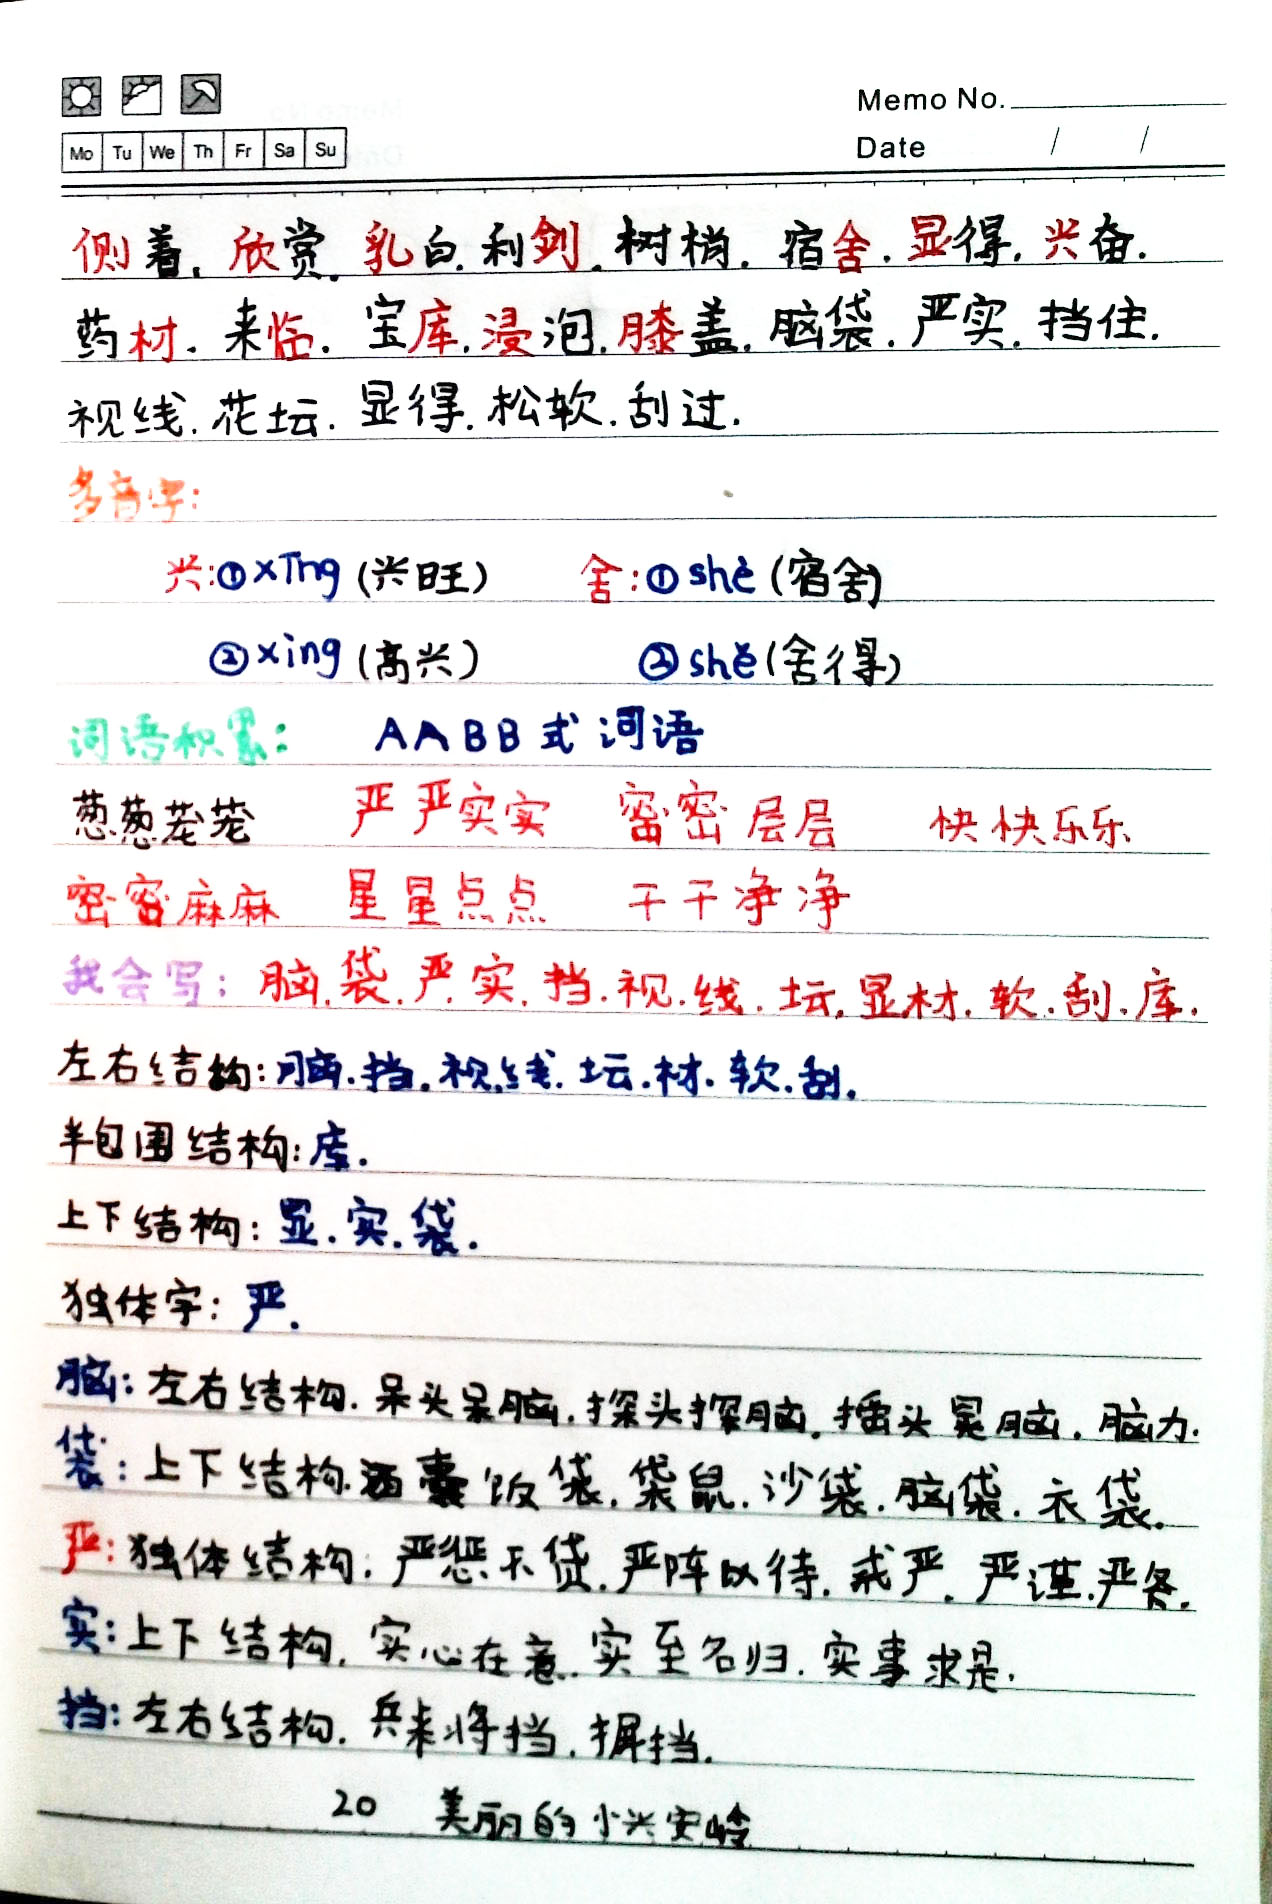 Memo No.
Mo Tu We Th Fr Sa Su
Date / /
侧着. 欣赏. 乳白. 利剑. 树梢. 宿舍. 显得. 兴奋.
药材. 来临. 宝库. 浸泡. 膝盖. 脑袋. 严实. 挡住.
视线. 花坛. 显得. 松软. 刮过.
多音字:
兴:①xīng(兴旺) 舍:①shè(宿舍)
②xìng(高兴) ②shě(舍得)
词语积累: AABB式词语
葱葱茏茏 严严实实 密密层层 快快乐乐
密密麻麻 星星点点 干干净净
我会写: 脑.袋.严.实.挡.视.线.坛.显.材.软.刮.库.
左右结构:脑.挡.视.线.坛.材.软.刮.
半包围结构:库.
上下结构:显.实.袋.
独体字:严.
脑:左右结构.呆头呆脑.探头探脑.摇头晃脑.脑力.
袋:上下结构.酒囊饭袋.袋鼠.沙袋.脑袋.衣袋.
严:独体结构:严惩不贷.严阵以待.戒严.严谨.严冬.
实:上下结构.实心在意.实至名归.实事求是.
挡:左右结构.兵来将挡.摒挡.
20 美丽的小兴安岭